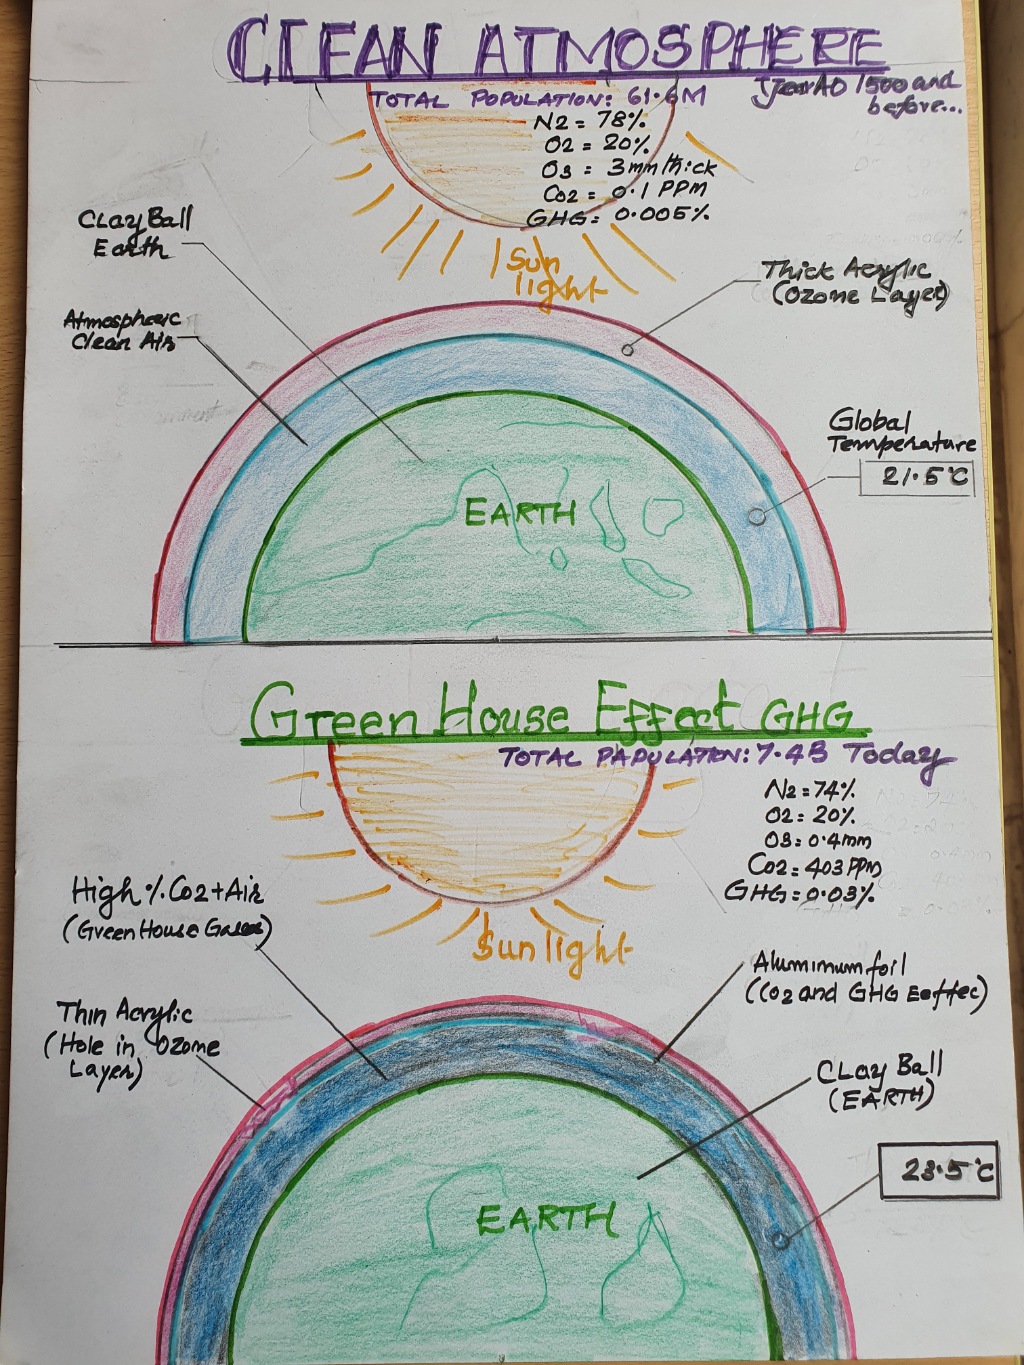 CLEAN ATMOSPHERE
TOTAL POPULATION: 61.6M
Year AD 1500 and
before...
N2 = 78%
O2 = 20%
O3 = 3mm thick
Co2 = 0.1 PPM
GHG = 0.005%
Clay Ball
Earth
Sun
light
Thick Acrylic
(Ozone Layer)
Atmospheric
Clean Air
Global
Temperature
21.5°C
EARTH
Green House Effect GHG
TOTAL PAPULATION: 7.4B Today
N2 = 74%
O2 = 20%
O3 = 0.4mm
Co2 = 403 PPm
GHG = 0.03%
High %. Co2 + Air
(Green House Gases)
Sunlight
Aluminum foil
(Co2 and GHG Eeffec)
Thin Acrylic
(Hole in Ozome
Layer)
CLay Ball
(EARTH)
23.5°C
EARTH